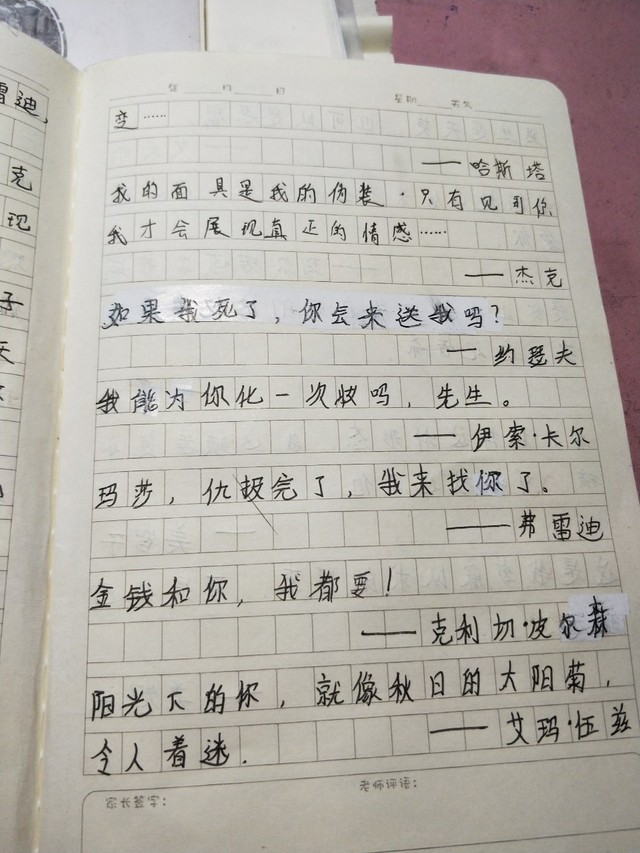 雷迪,
克
现
子
天
年 月 日 星期 天气
变……
——哈斯塔
我的面具是我的伪装.只有见到你
我才会展现真正的情感……
——杰克
如果我死了,你会来送我吗?
——约瑟夫
我能为你化一次妆吗,先生。
——伊索·卡尔
玛莎,仇报完了,我来找你了。
——弗雷迪
金钱和你,我都要!
——克利切·皮尔森
阳光下的你,就像秋日的大阳菊,
令人着迷. ——艾玛·伍兹
家长签字: 老师评语: